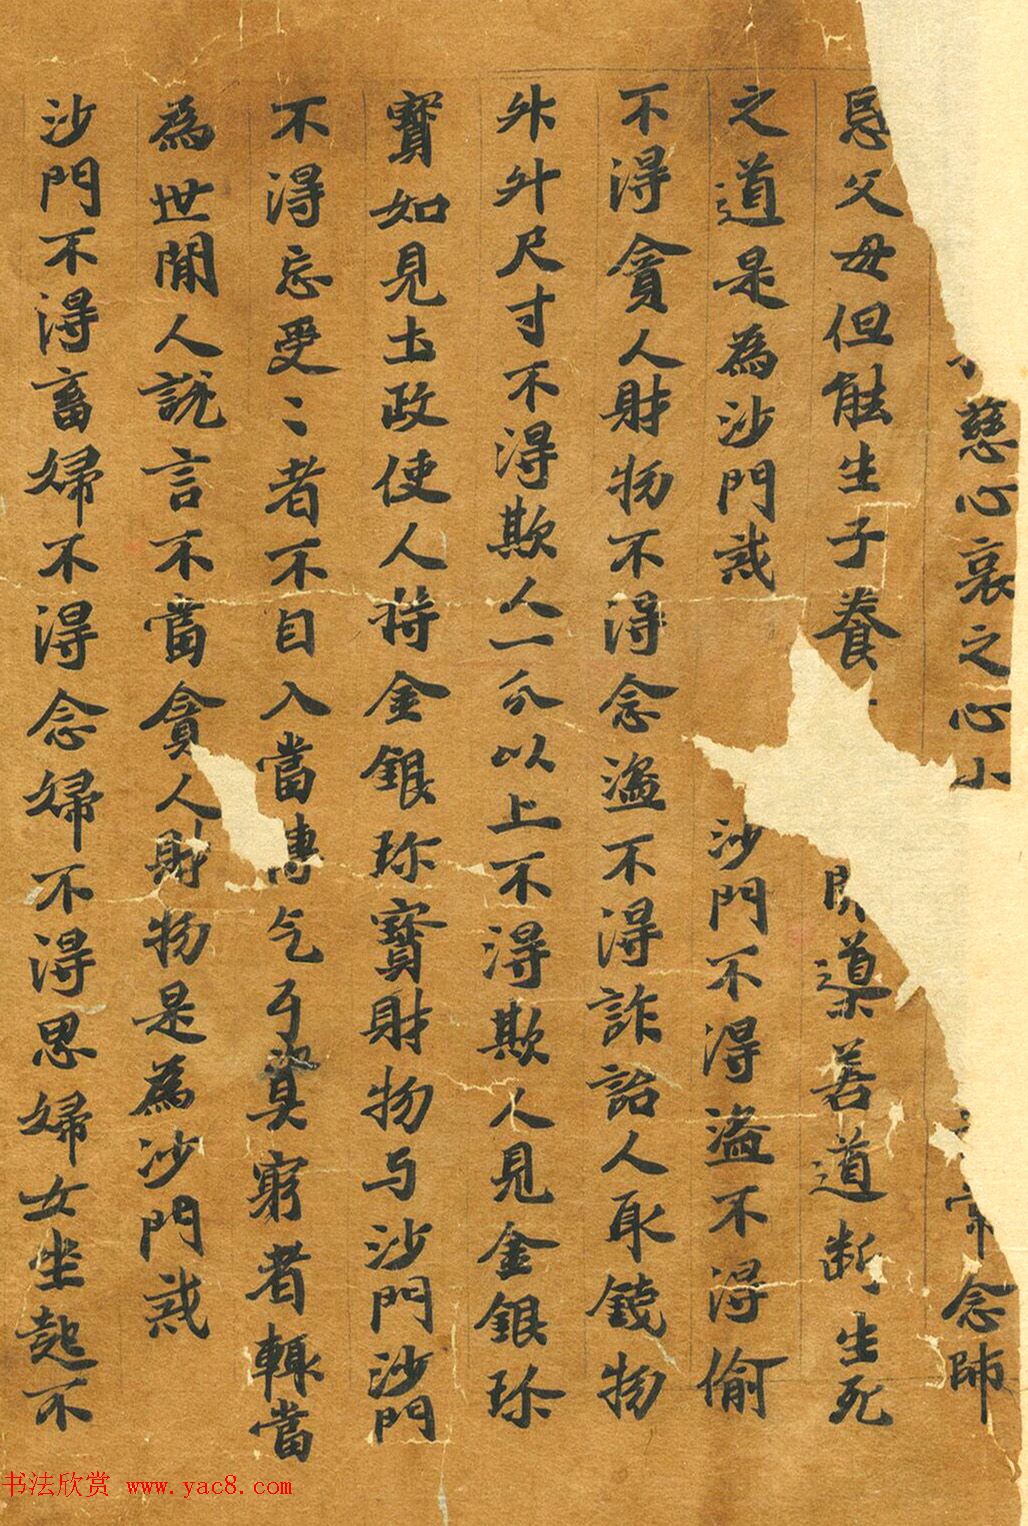 慈心哀之心小 常念師
恩父母但能生子養 開導善道断生死
之道是為沙門戒 沙門不得盗不得偷
不得貪人財物不得念盗不得詐詒人取錢物
升升尺寸不得欺人一分以上不得欺人見金銀珎
寶如見土政使人持金銀珎寶財物与沙門沙門
不得忘受〻者不自入當 气丐 窮者轉當
為世閒人說言不當貪人財物是為沙門戒
沙門不得畜婦不得念婦不得思婦女坐起不
书法欣赏 www.yac8.com